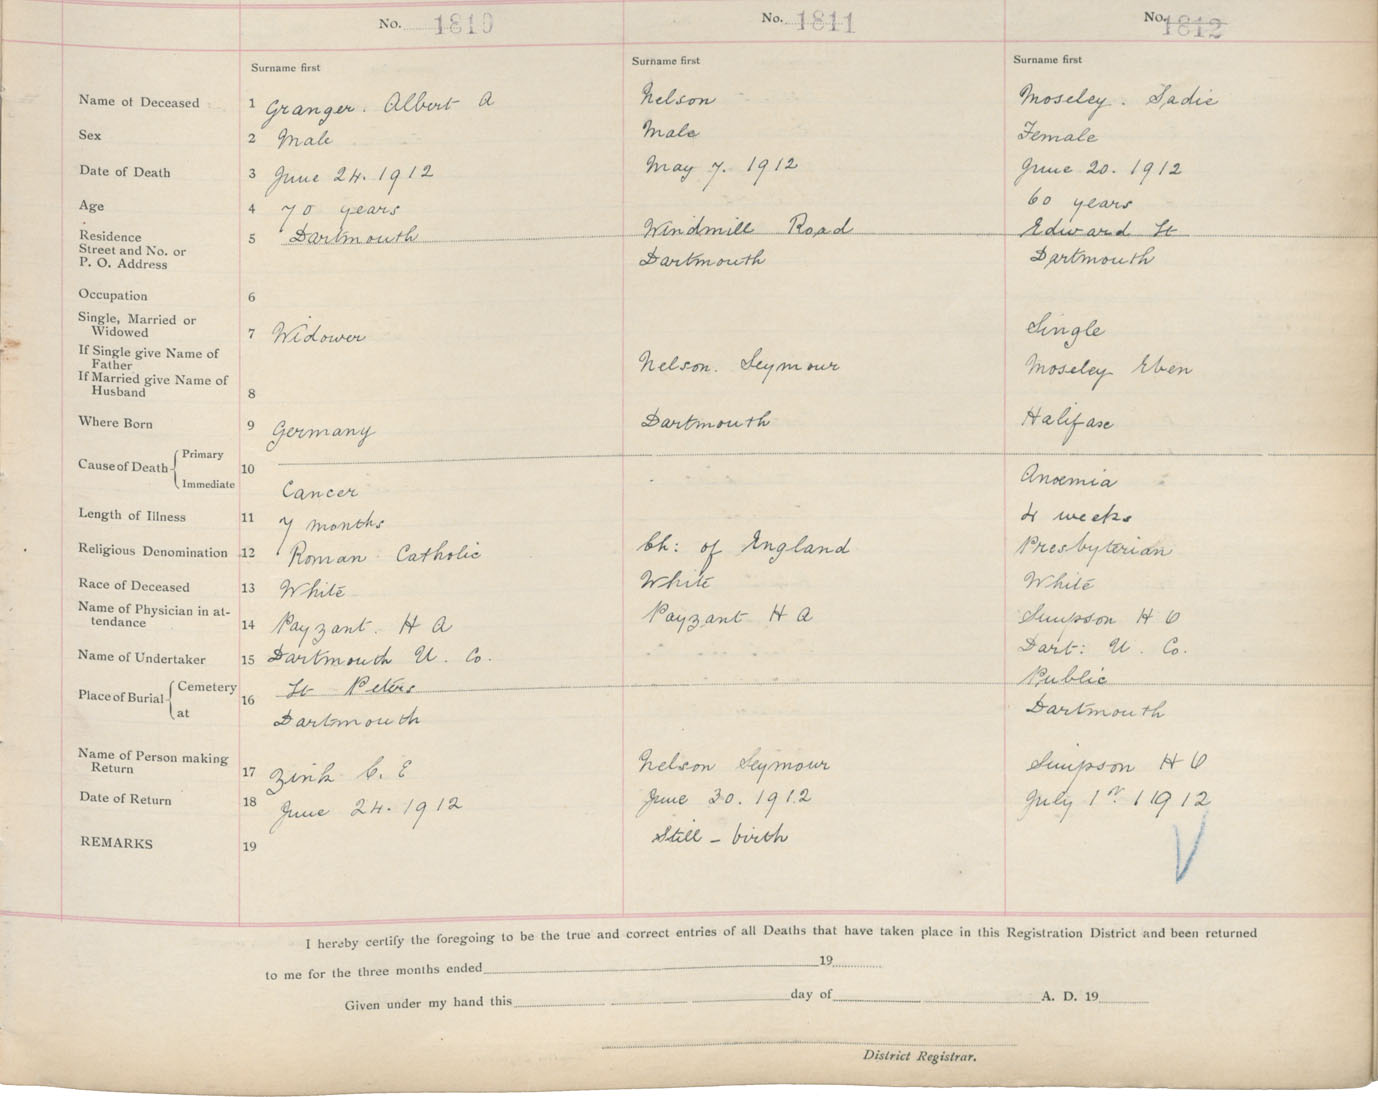 No. 1810 No. 1811 No. 1812
Surname first Surname first Surname first
Name of Deceased 1 Granger. Albert A Nelson Moseley. Sadie
Sex 2 Male Male Female
Date of Death 3 June 24. 1912 May 7. 1912 June 20. 1912
Age 4 70 years 60 years
Residence 5 Dartmouth Windmill Road Edward St
Street and No. or
P. O. Address Dartmouth Dartmouth
Occupation 6
Single, Married or
Widowed 7 Widower Single
If Single give Name of
Father Nelson. Seymour Moseley Eben
If Married give Name of
Husband 8
Where Born 9 Germany Dartmouth Halifax
Cause of Death Primary 10
Immediate Cancer Anoemia
Length of Illness 11 7 months 4 weeks
Religious Denomination 12 Roman Catholic Ch: of England Presbyterian
Race of Deceased 13 White White White
Name of Physician in at-
tendance 14 Payzant. H A Payzant H A Simpson H O
Name of Undertaker 15 Dartmouth U. Co. Dart: U. Co.
Place of Burial Cemetery 16 St Peters Public
at Dartmouth Dartmouth
Name of Person making
Return 17 Zink C. E Nelson Seymour Simpson H O
Date of Return 18 June 24. 1912 June 30. 1912 July 1st 1912
REMARKS 19 Still - birth
I hereby certify the foregoing to be the true and correct entries of all Deaths that have taken place in this Registration District and been returned
to me for the three months ended 19
Given under my hand this day of A. D. 19
District Registrar.